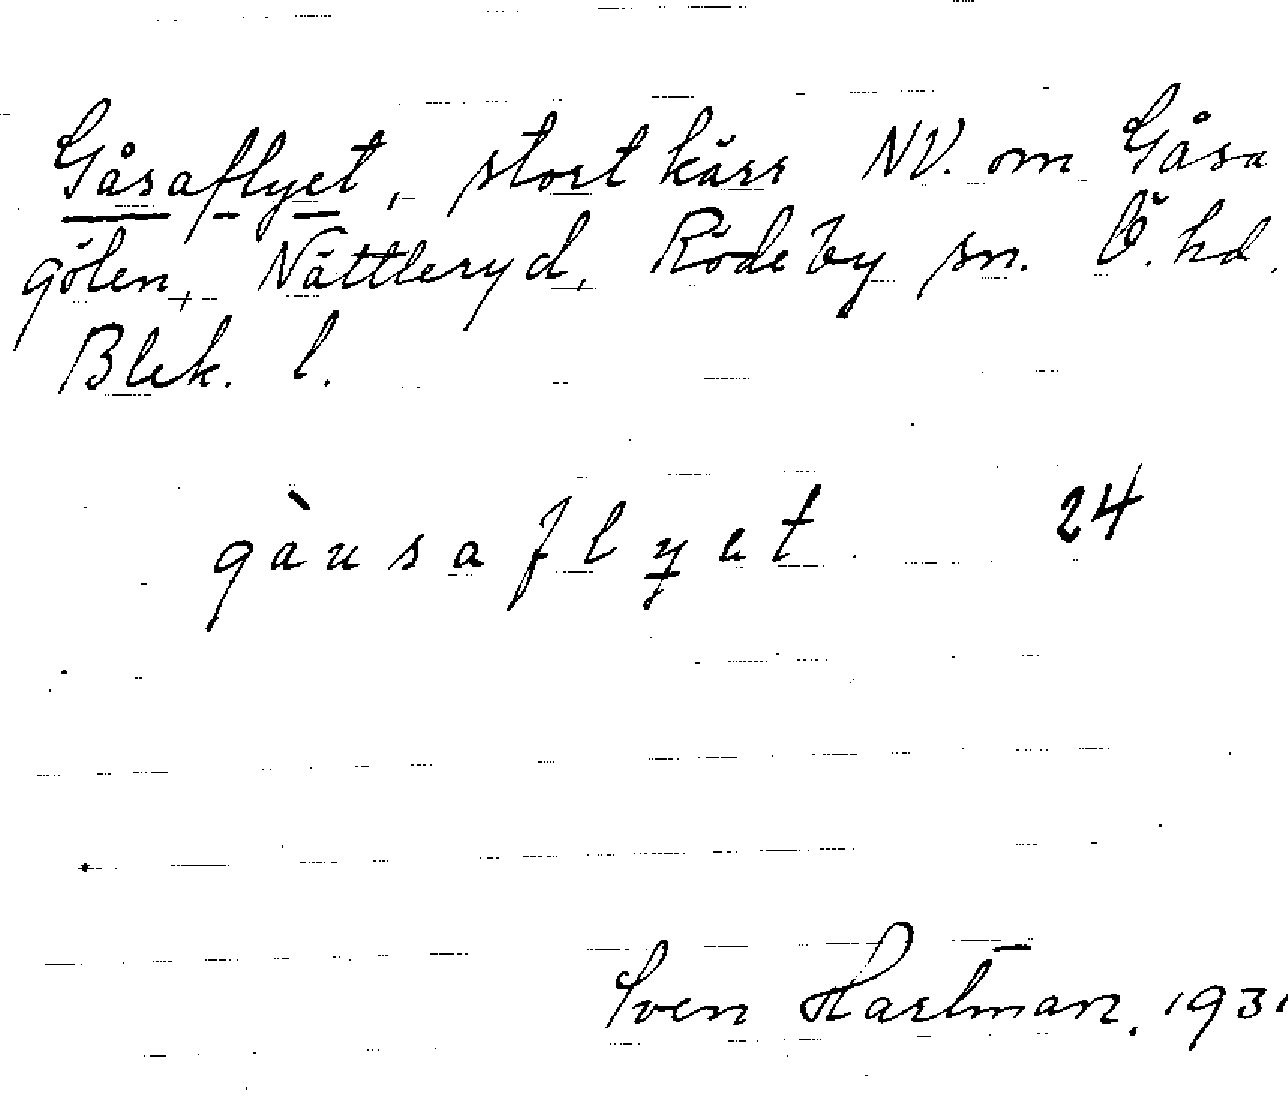 Gåsaflyet, stort kärr NV. om Gåsa
gölen, Nättleryd, Rödeby sn. Ö. hd.
Blek. l.
gàusaflyet 24
Sven Hartman. 1931